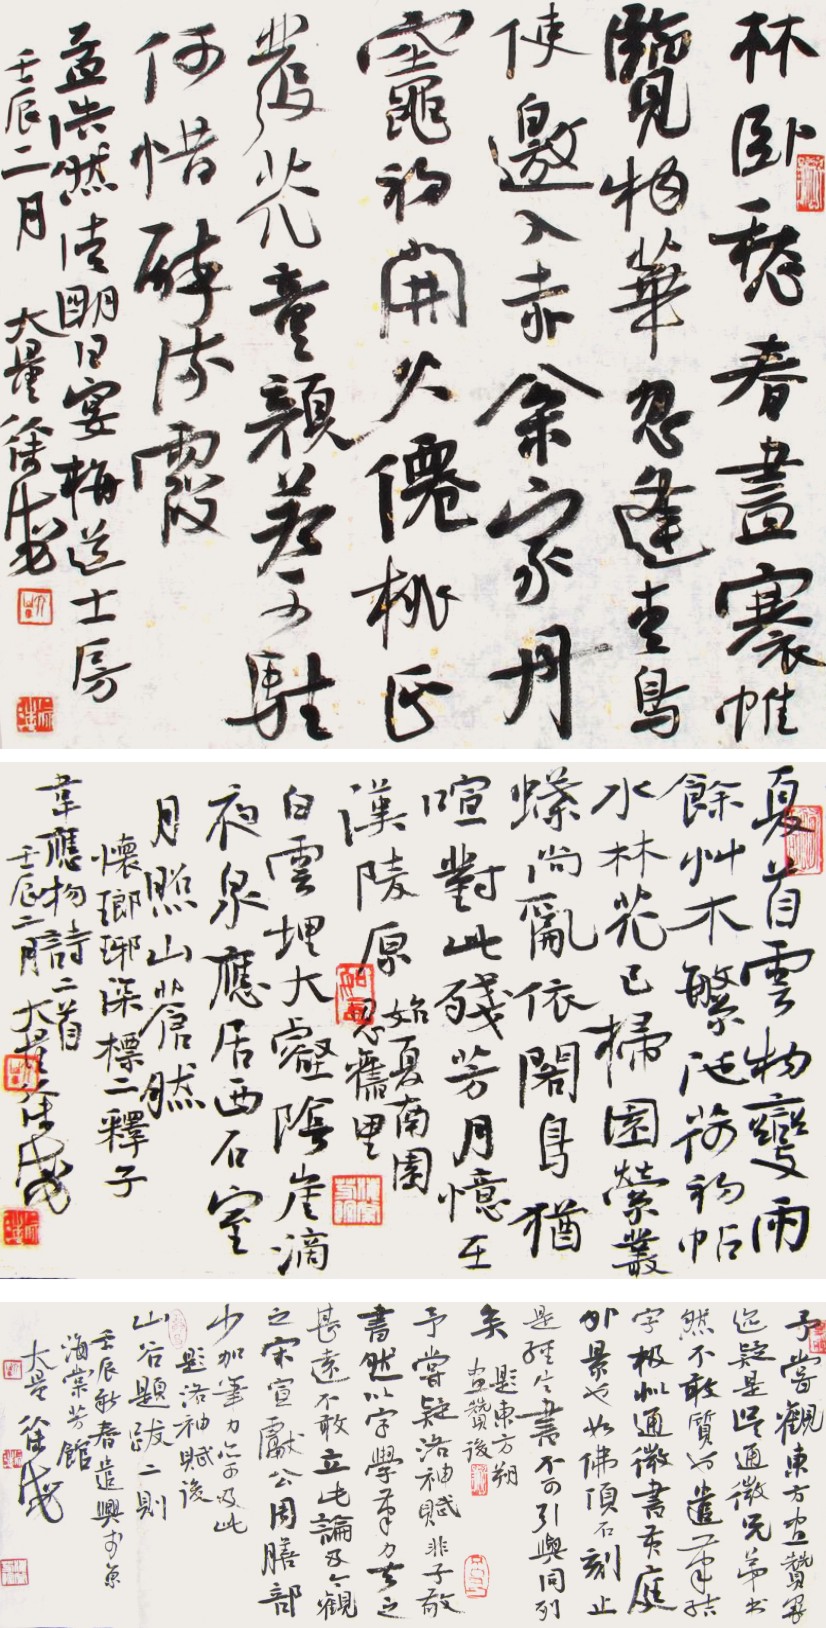 林卧愁春盡寨帷
覽物華忽逢青鳥
使邀入赤松家丹
竈初開火僊桃正
發花童顏若可駐
何惜醉流霞
孟浩然清明日宴梅道士房
壬辰二月 大量徐
夏首雲物變雨
餘艸木繁池荷初帖
水林花已掃園縈叢
蝶尚亂依閣鳥猶
喧對此殘芳月憶在
漢陵原 始夏南園
思舊里
白雲埋大壑陰崖滴
夜泉應居西石室
月照山蒼然
懷瑯琊深標二釋子
韋應物詩二首
壬辰二月 大量徐
予嘗觀東方畫贊墨
迹疑是吳通微兄弟書
然不敢質也遣筆結
字極似通微書黃庭
外景也如佛頂石刻止
是經生書不可引與同列
矣 題東方朔
畫贊後
予嘗疑洛神賦非子敬
書然以字學筆力去之
甚遠不敢立此論及今觀
之宋宣獻公周膳部
少加筆力亦可及此
題洛神賦後
山谷題跋二則
壬辰新春遣興於京
海棠芳館
大量徐